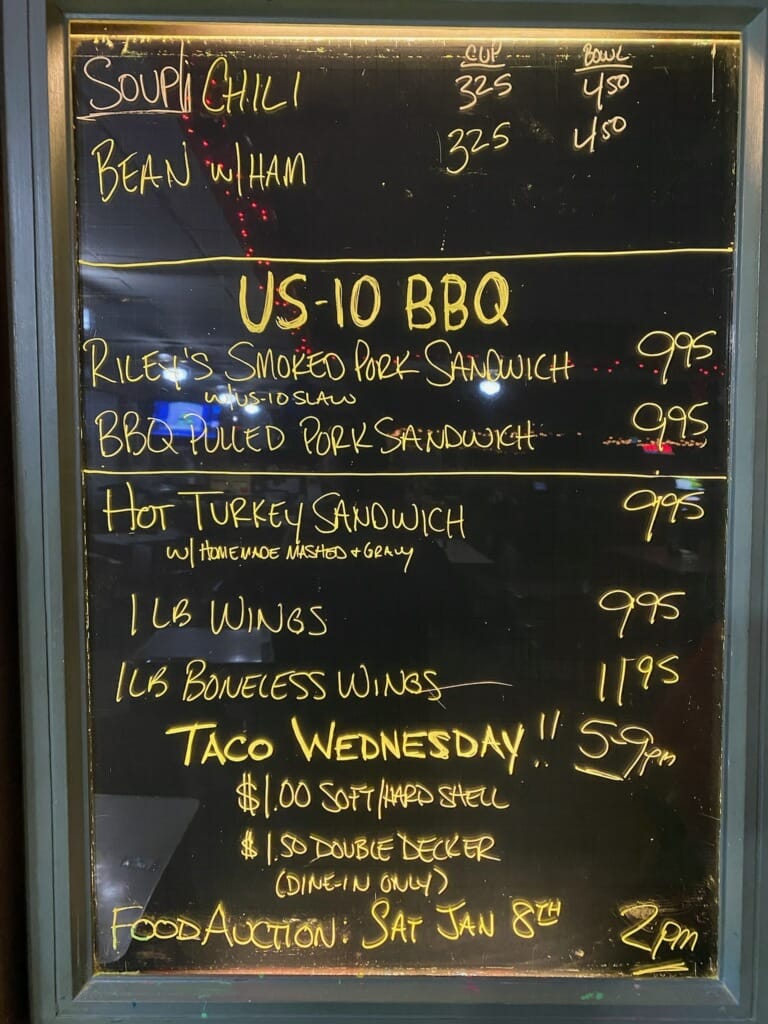 CUP BOWL
SOUP/ CHILI 325 450
BEAN W/HAM 325 450
US-10 BBQ
RILEY'S SMOKED PORK SANDWICH 995
W/US-10 SLAW
BBQ PULLED PORK SANDWICH 995
HOT TURKEY SANDWICH 995
W/ HOMEMADE MASHED + GRAVY
1 LB WINGS 995
1 LB BONELESS WINGS 1195
TACO WEDNESDAY!! 5-9pm
$1.00 SOFT/HARD SHELL
$1.50 DOUBLE DECKER
(DINE-IN ONLY)
FOOD AUCTION: SAT JAN 8TH 2pm